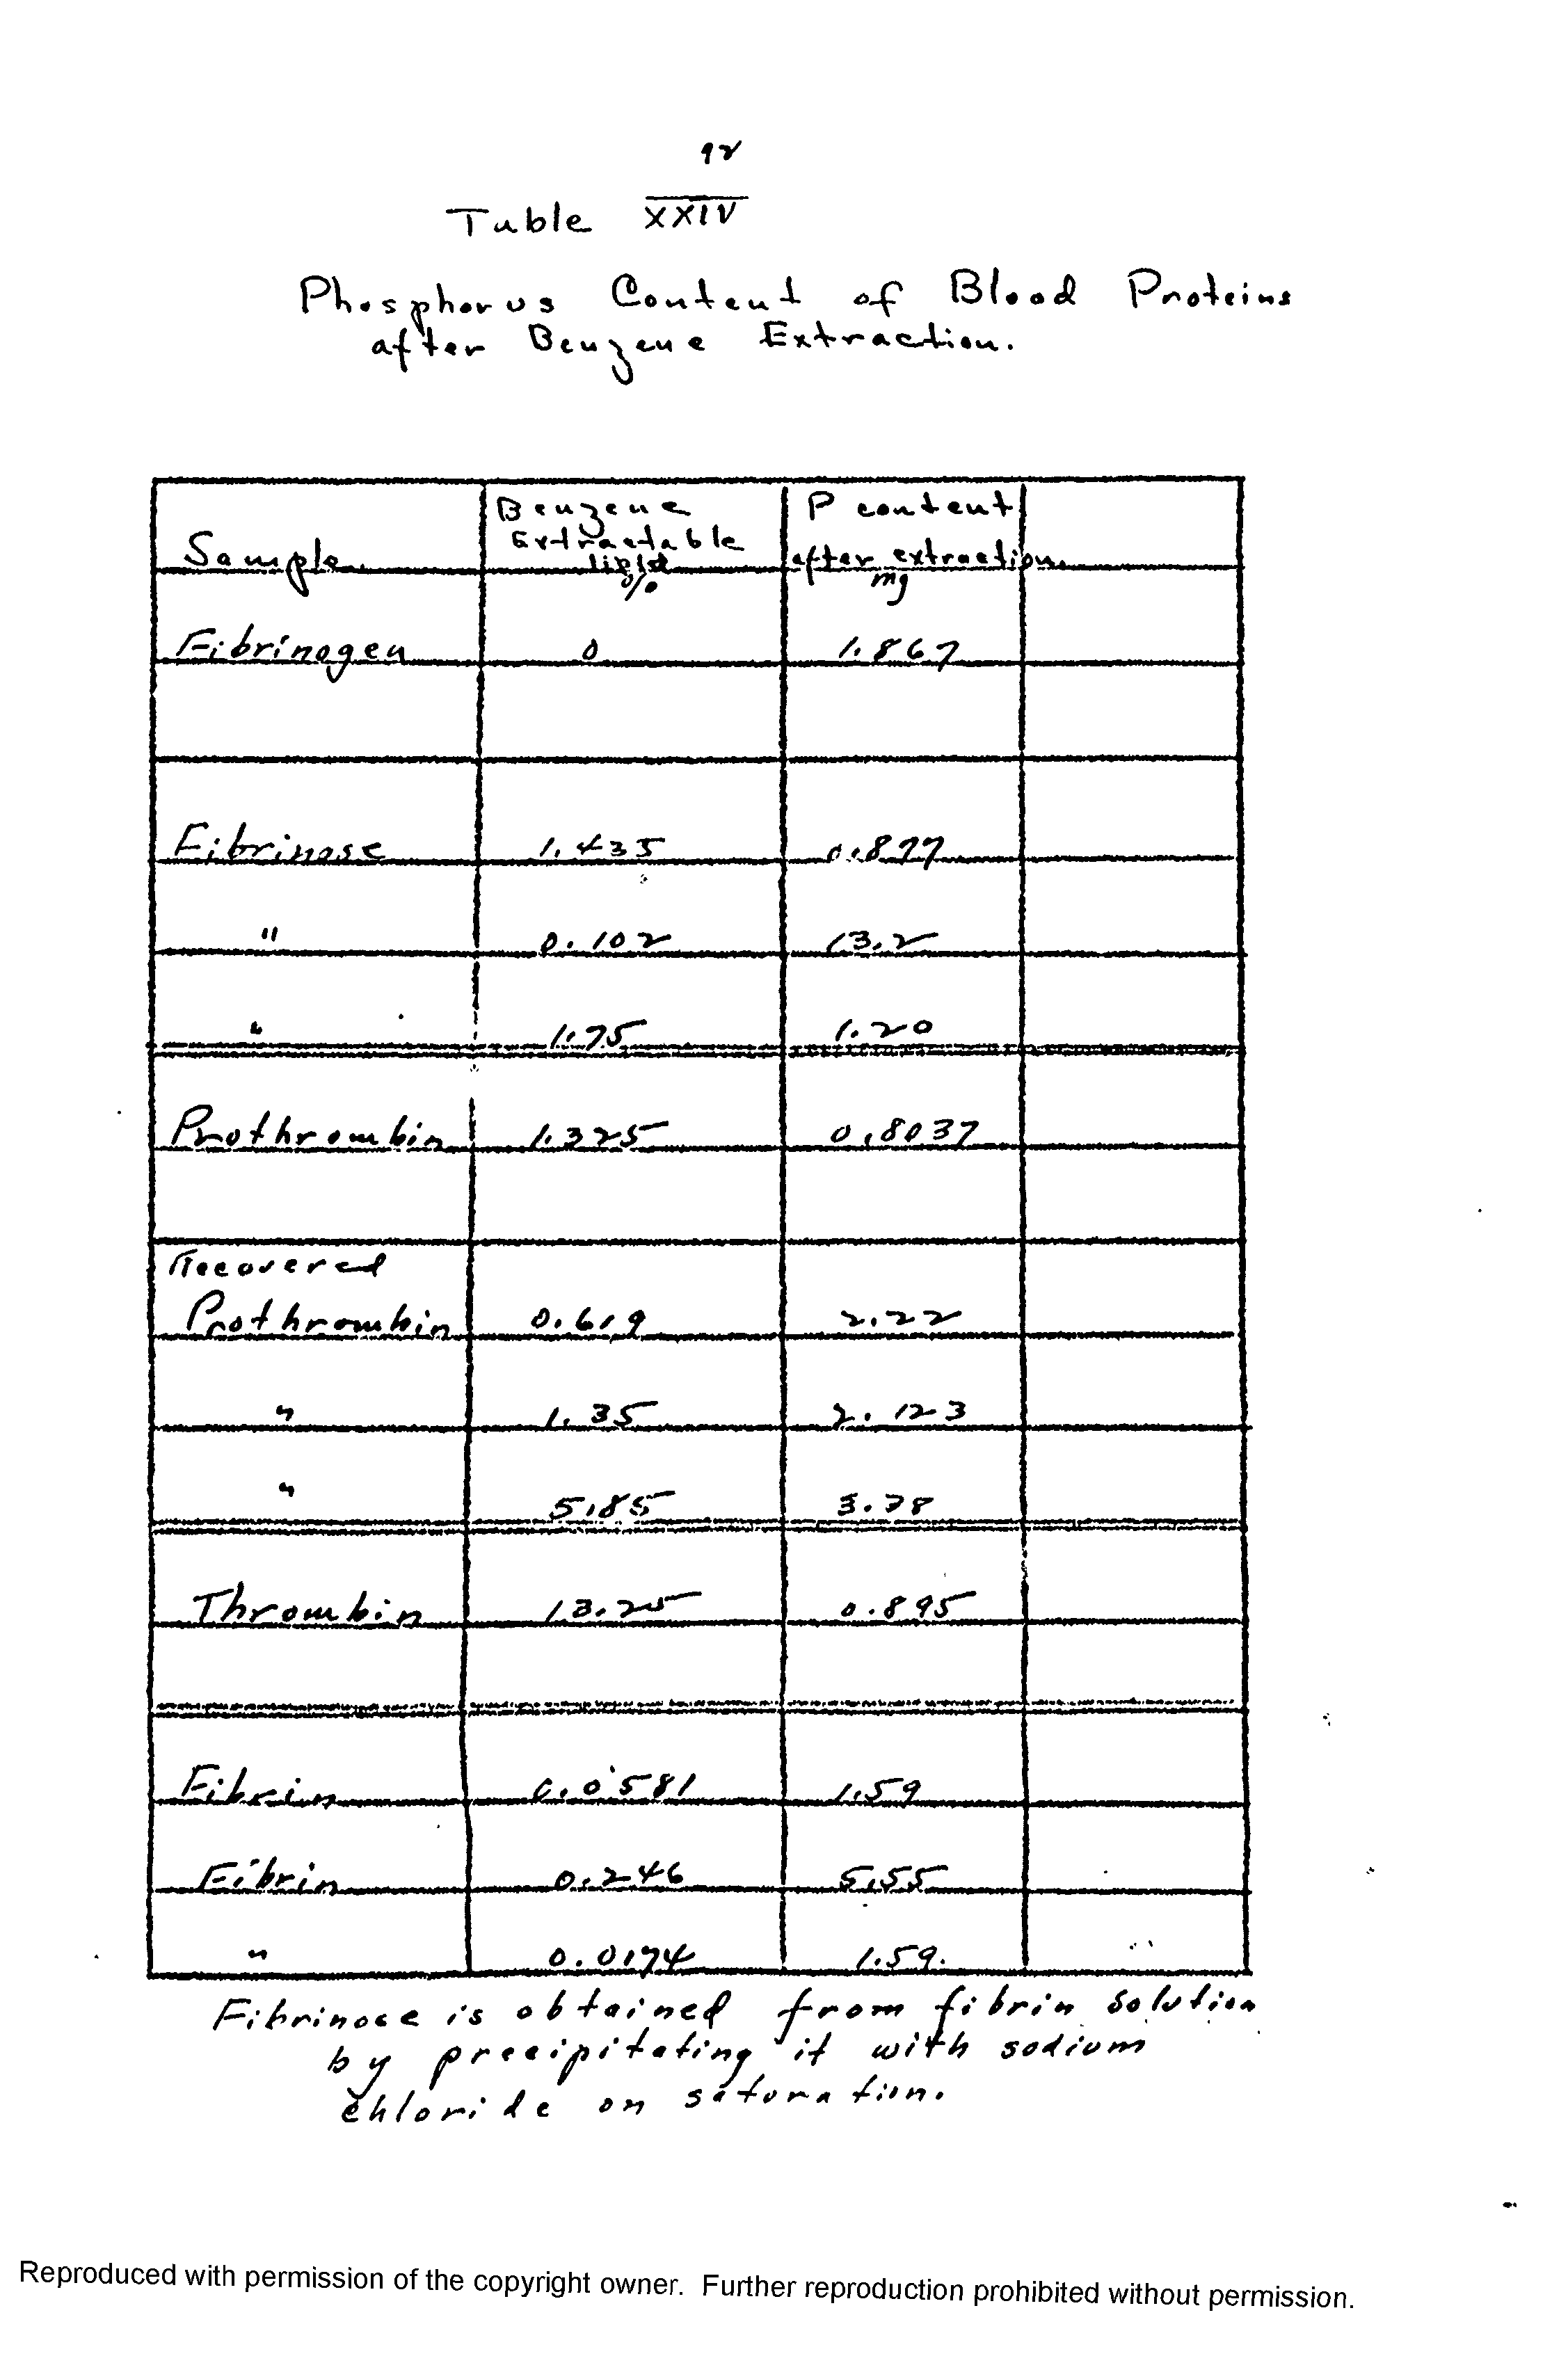 92
Table XXIV
Phosphorus Content of Blood Proteins
after Benzene Extraction.
Sample Benzene Extractable lipid % P content after extraction. mg
Fibrinogen 0 1.867
Fibrinose 1.435 0.877
" 0.102 13.2
" 1.75 1.20
Prothrombin 1.325 0.8037
Recovered
Prothrombin 0.619 2.22
" 1.35 2.123
" 5.85 3.78
Thrombin 13.25 0.895
Fibrin 0.0581 1.59
Fibrin 0.246 5.55
" 0.0174 1.59.
Fibrinose is obtained from fibrin solution
by precipitating it with sodium
chloride on saturation.
Reproduced with permission of the copyright owner. Further reproduction prohibited without permission.